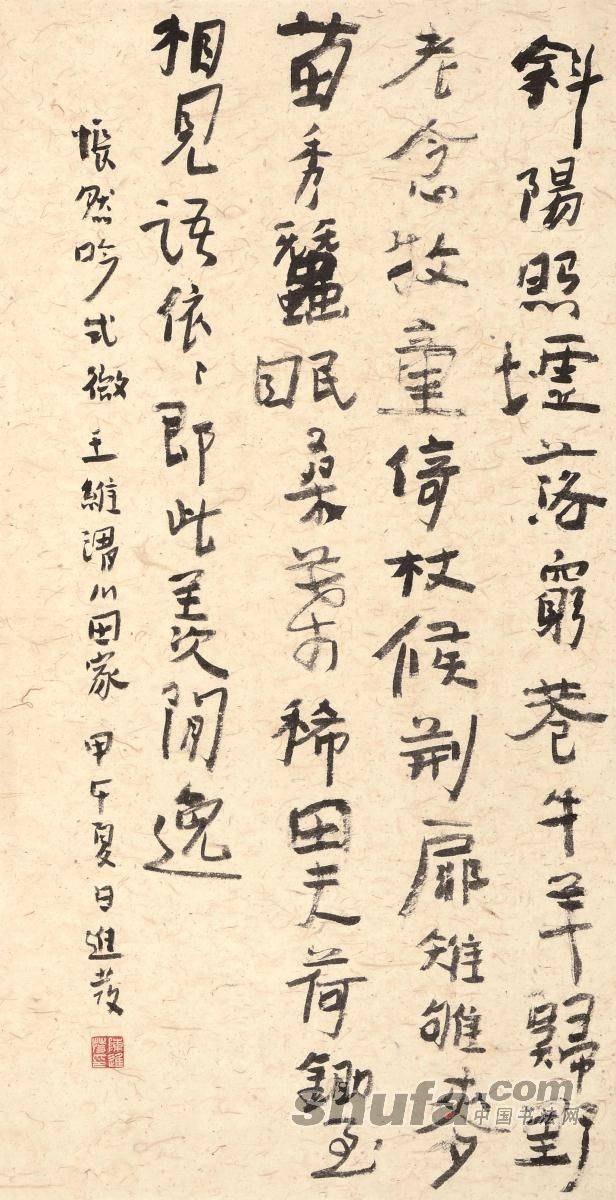 斜陽照墟落窮巷牛羊歸野
老念牧童倚杖候荆扉雉雊麥
苗秀蠶眠桑葉稀田夫荷鋤至
相見語依〻即此羡閒逸
悵然吟式微 王維渭川田家 甲午夏日進發
shufa.com
中国书法网